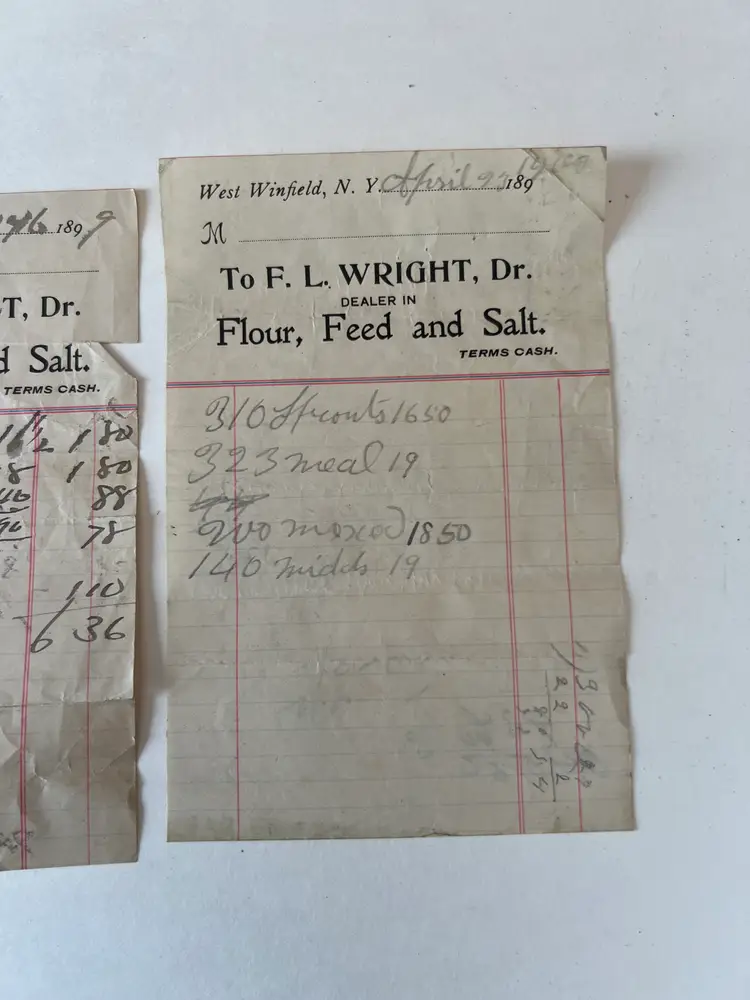 189 9
T, Dr.
d Salt.
TERMS CASH.
1 80
8 1 80
88
78
1 10
6 36
West Winfield, N. Y. April 23 189
M
To F. L. WRIGHT, Dr.
DEALER IN
Flour, Feed and Salt.
TERMS CASH.
310 Sprouts 1650
323 meal 19
200 mixed 1850
140 midds 19